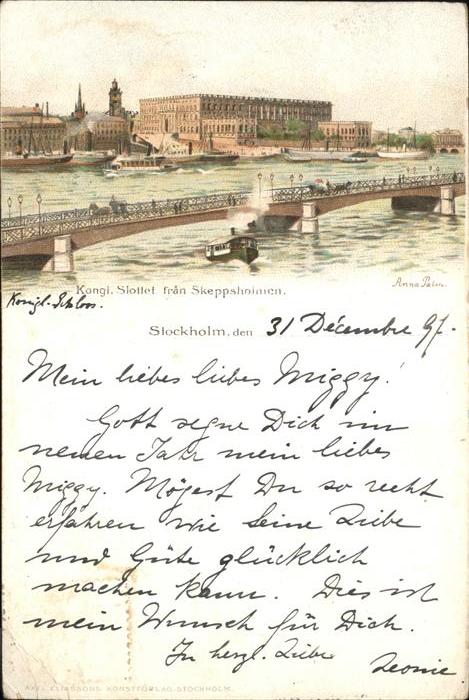 Kongl. Slottet från Skeppsholmen.
Anna Palm.
Königl. Schloss.
Stockholm, den 31 Décembre 97.
Mein liebes liebes Miggy!
Gott segne Dich im
neuen Jahr mein liebes
Miggy. Mögest Du so recht
erfahren wie seine Liebe
und Güte glücklich
machen kann. Dies ist
mein Wunsch für Dich.
In herzl. Liebe
Leonie
AXEL ELIASSONS KONSTFÖRLAG STOCKHOLM.